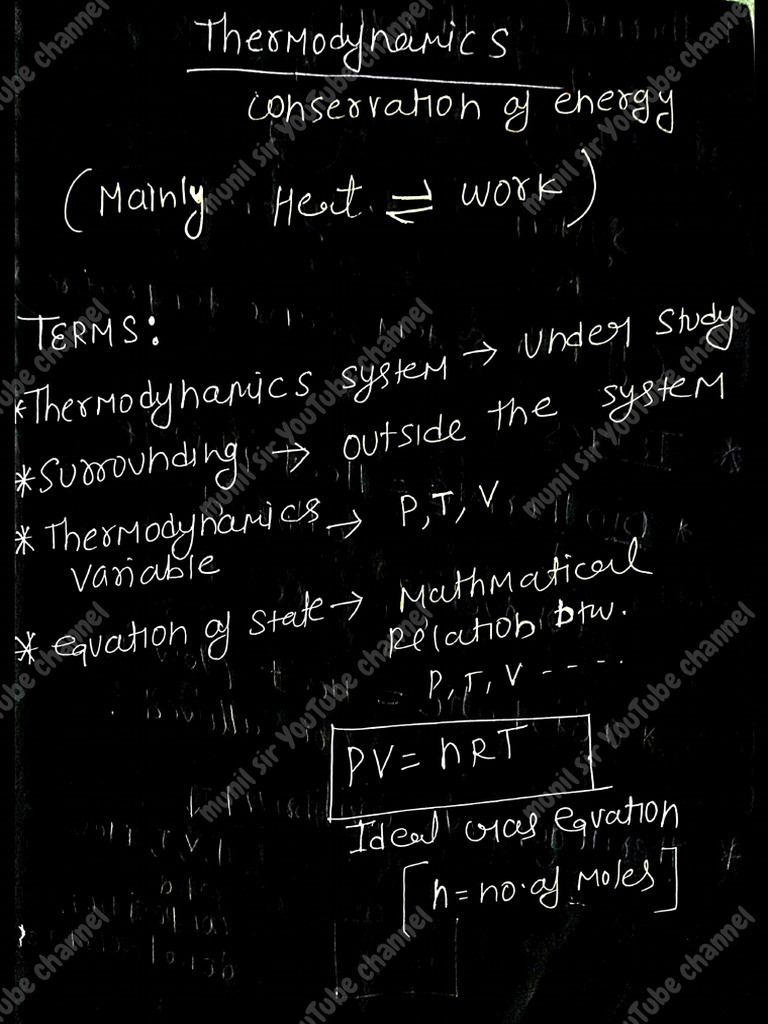 Thermodynamics
conservation of energy
(Mainly Heat ⇌ work)
TERMS:
*Thermodynamics system → under study
*Surrounding → outside the system
*Thermodynamics variable → P, T, V
*equation of state → Mathmatical Relation btw. P, T, V -----
PV = nRT
Ideal Gas equation
[n = no. of Moles]
munil sir YouTube channel